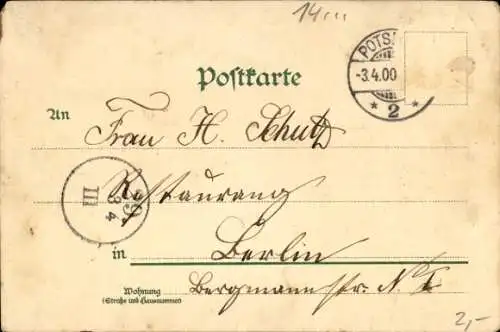 14
POTS
-3.4.00
* 2 *
Postkarte
An
Frau H. Schutz
Restaurang
III
3 4
in Berlin
Wohnung
(Straße und Hausnummer)
Bergmannstr. N.
2,-